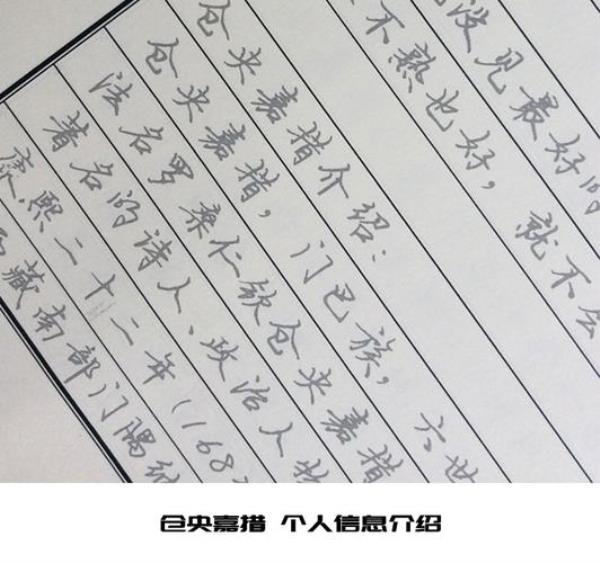 没见最好的
不熟也好，就不会
仓央嘉措介绍：
仓央嘉措，门巴族，六世
法名罗桑仁钦仓央嘉措
著名的诗人、政治人物
康熙二十二年（168
西藏南部门隅纳
仓央嘉措 个人信息介绍